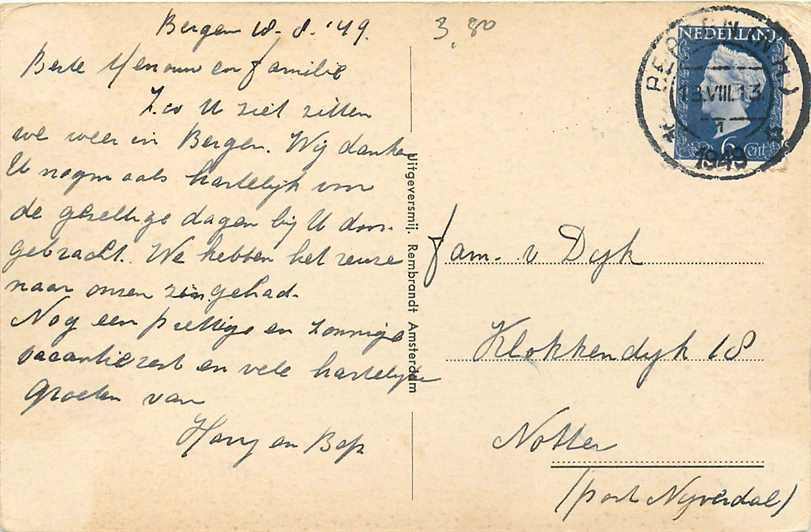 Bergen 18-8-'49.
3,80
Beste Mevrouw en familie
Zoo U ziet zitten
we weer in Bergen. Wij danken
U nogmaals hartelijk voor
de gezellige dagen bij U door-
gebracht. We hebben het reuze
naar onzen zin gehad.
Nog een prettige en zonnige
vacantierest en vele hartelijke
groeten van
Harry en Bep
Uitgeversmij. Rembrandt Amsterdam
NEDERLAND
6 Cnt
BERGEN (N.H.)
VIII.13
1949
Fam. v Dijk
Klokkendijk 18
Notter
(post Nijverdal)